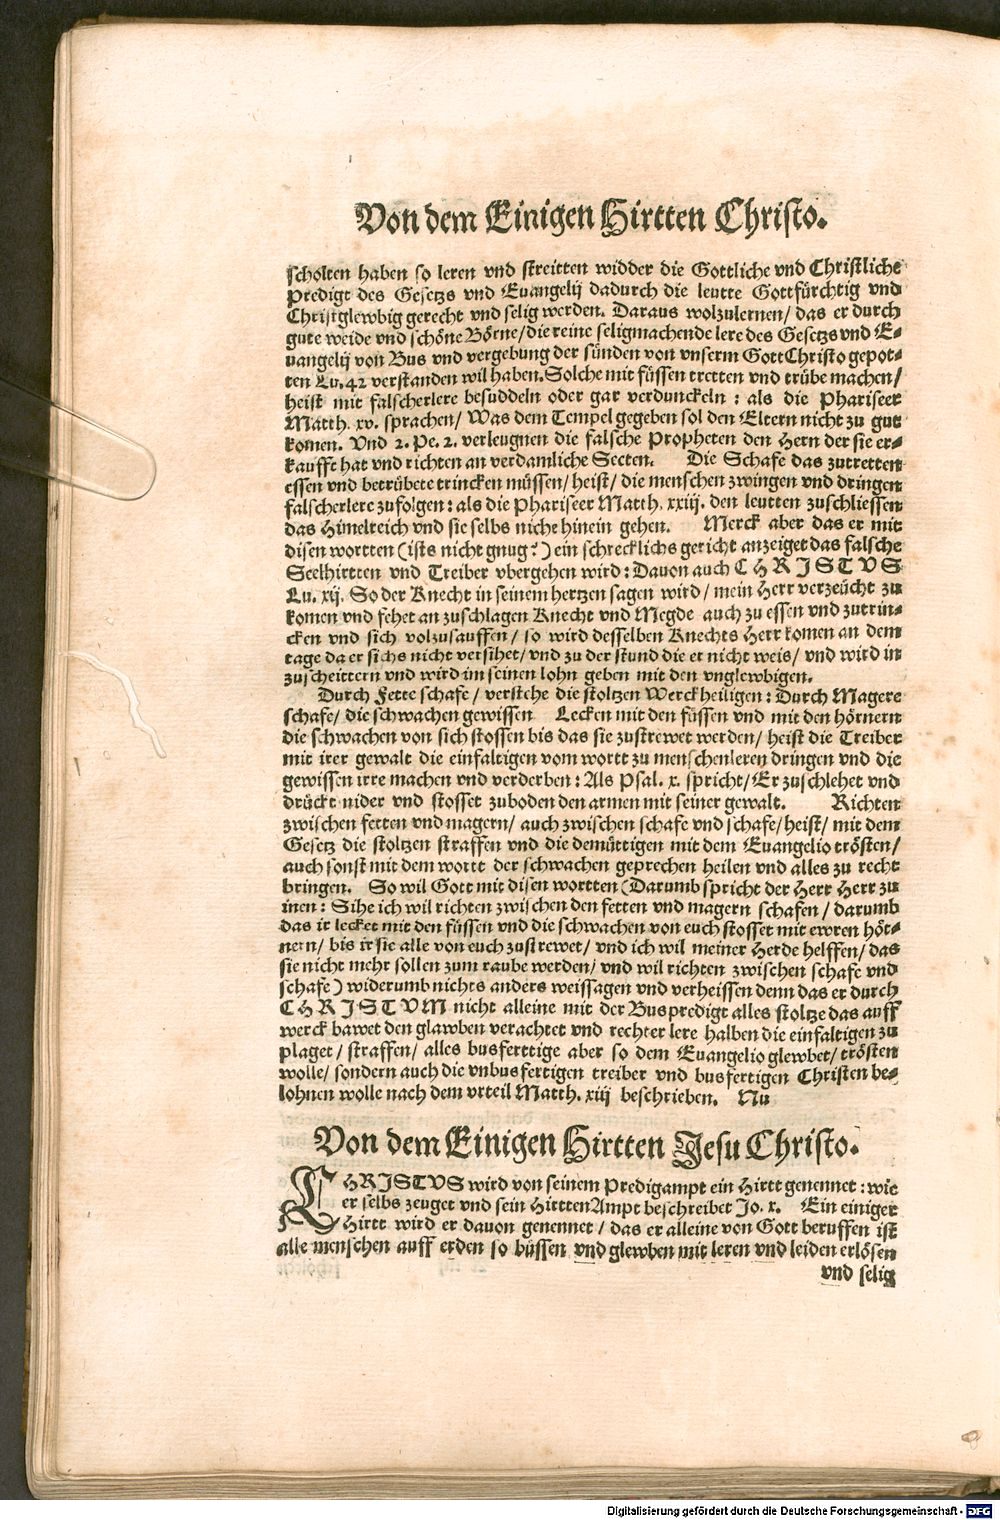 Von dem Einigen Hirtten Christo.
scholten haben so leren vnd streitten widder die Gottliche vnd Christliche
Predigt des Gesetzs vnd Euangelij dadurch die leutte Gottfürchtig vnd
Christglewbig gerecht vnd selig werden. Daraus wolzulernen/ das er durch
gute weide vnd schöne Börne/ die reine seligmachende lere des Gesetzs vnd E-
uangelij von Bus vnd vergebung der sünden von vnserm Gott Christo gepot-
ten Lu. 42 verstanden wil haben. Solche mit füssen tretten vnd trübe machen/
heist mit falscher lere besuddeln oder gar verdunckeln : als die Phariseer
Matth. xv. sprachen/ Was dem Tempel gegeben sol den Eltern nicht zu gut
komen. Vnd 2. Pe. 2. verleugnen die falsche Propheten den Hern der sie er-
kaufft hat vnd richten an verdamliche Secten. Die Schafe das zutretten
essen vnd betrübete trincken müssen/ heist/ die menschen zwingen vnd dringen
falscher lere zufolgen : als die Phariseer Matth. xxiij. den leutten zuschliessen
das Himelreich vnd sie selbs nicht hinein gehen. Merck aber das er mit
disen wortten (ists nicht gnug?) ein schrecklichs gericht anzeiget das falsche
Seelhirtten vnd Treiber vbergehen wird : Dauon auch CHRISTVS
Lu. xij. So der Knecht in seinem hertzen sagen wird/ mein Herr verzeücht zu
komen vnd fehet an zuschlagen Knecht vnd Megde auch zu essen vnd zutrin-
cken vnd sich volzusauffen/ so wird desselben Knechts Herr komen an dem
tage da er sichs nicht versihet/ vnd zu der stund die er nicht weis/ vnd wird in
zuscheittern vnd wird im seinen lohn geben mit den vnglewbigen.
Durch Fette schafe/ verstehe die stoltzen Werckheiligen : Durch Magere
schafe/ die schwachen gewissen Lecken mit den füssen vnd mit den hörnern
die schwachen von sich stossen bis das sie zustrewet werden/ heist die Treiber
mit irer gewalt die einfaltigen vom wortt zu menschenleren dringen vnd die
gewissen irre machen vnd verderben : Als Psal. x. spricht/ Er zuschlehet vnd
drückt nider vnd stosset zuboden den armen mit seiner gewalt. Richten
zwischen fetten vnd magern/ auch zwischen schafe vnd schafe/ heist/ mit dem
Gesetz die stoltzen straffen vnd die demüttigen mit dem Euangelio trösten/
auch sonst mit dem wortt der schwachen geprechen heilen vnd alles zu recht
bringen. So wil Gott mit disen wortten (Darumb spricht der Herr Herr zu
inen : Sihe ich wil richten zwischen den fetten vnd magern schafen/ darumb
das ir lecket mit den füssen vnd die schwachen von euch stosset mit ewren hör-
nern/ bis ir sie alle von euch zustrewet/ vnd ich wil meiner Herde helffen/ das
sie nicht mehr sollen zum raube werden/ vnd wil richten zwischen schafe vnd
schafe) widerumb nichts anders weissagen vnd verheissen denn das er durch
CHRISTVM nicht alleine mit der Buspredigt alles stoltze das auff
werck bawet den glawben verachtet vnd rechter lere halben die einfaltigen zu
plaget/ straffen/ alles busferttige aber so dem Euangelio glewbet/ trösten
wolle/ sondern auch die vnbusfertigen treiber vnd busfertigen Christen be-
lohnen wolle nach dem vrteil Matth. xiij beschrieben. Nu
Von dem Einigen Hirtten Jesu Christo.
CHRISTVS wird von seinem Predigampt ein Hirtt genennet : wie
er selbs zeuget vnd sein Hirtten Ampt beschreibet Jo. x. Ein einiger
Hirtt wird er dauon genennet/ das er alleine von Gott beruffen ist
alle menschen auff erden so büssen vnd glewben mit leren vnd leiden erlösen
vnd selig
Digitalisierung gefördert durch die Deutsche Forschungsgemeinschaft - DFG